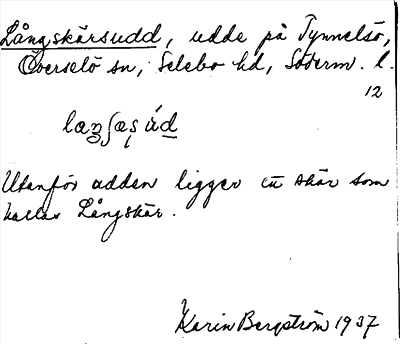 Långskärsudd, udde på Tynnelsö,
Överselö sn, Selebo hd, Söderm. l.
12
Utanför udden ligger ett skär som
kallas Långskär.
Karin Bergström 1937